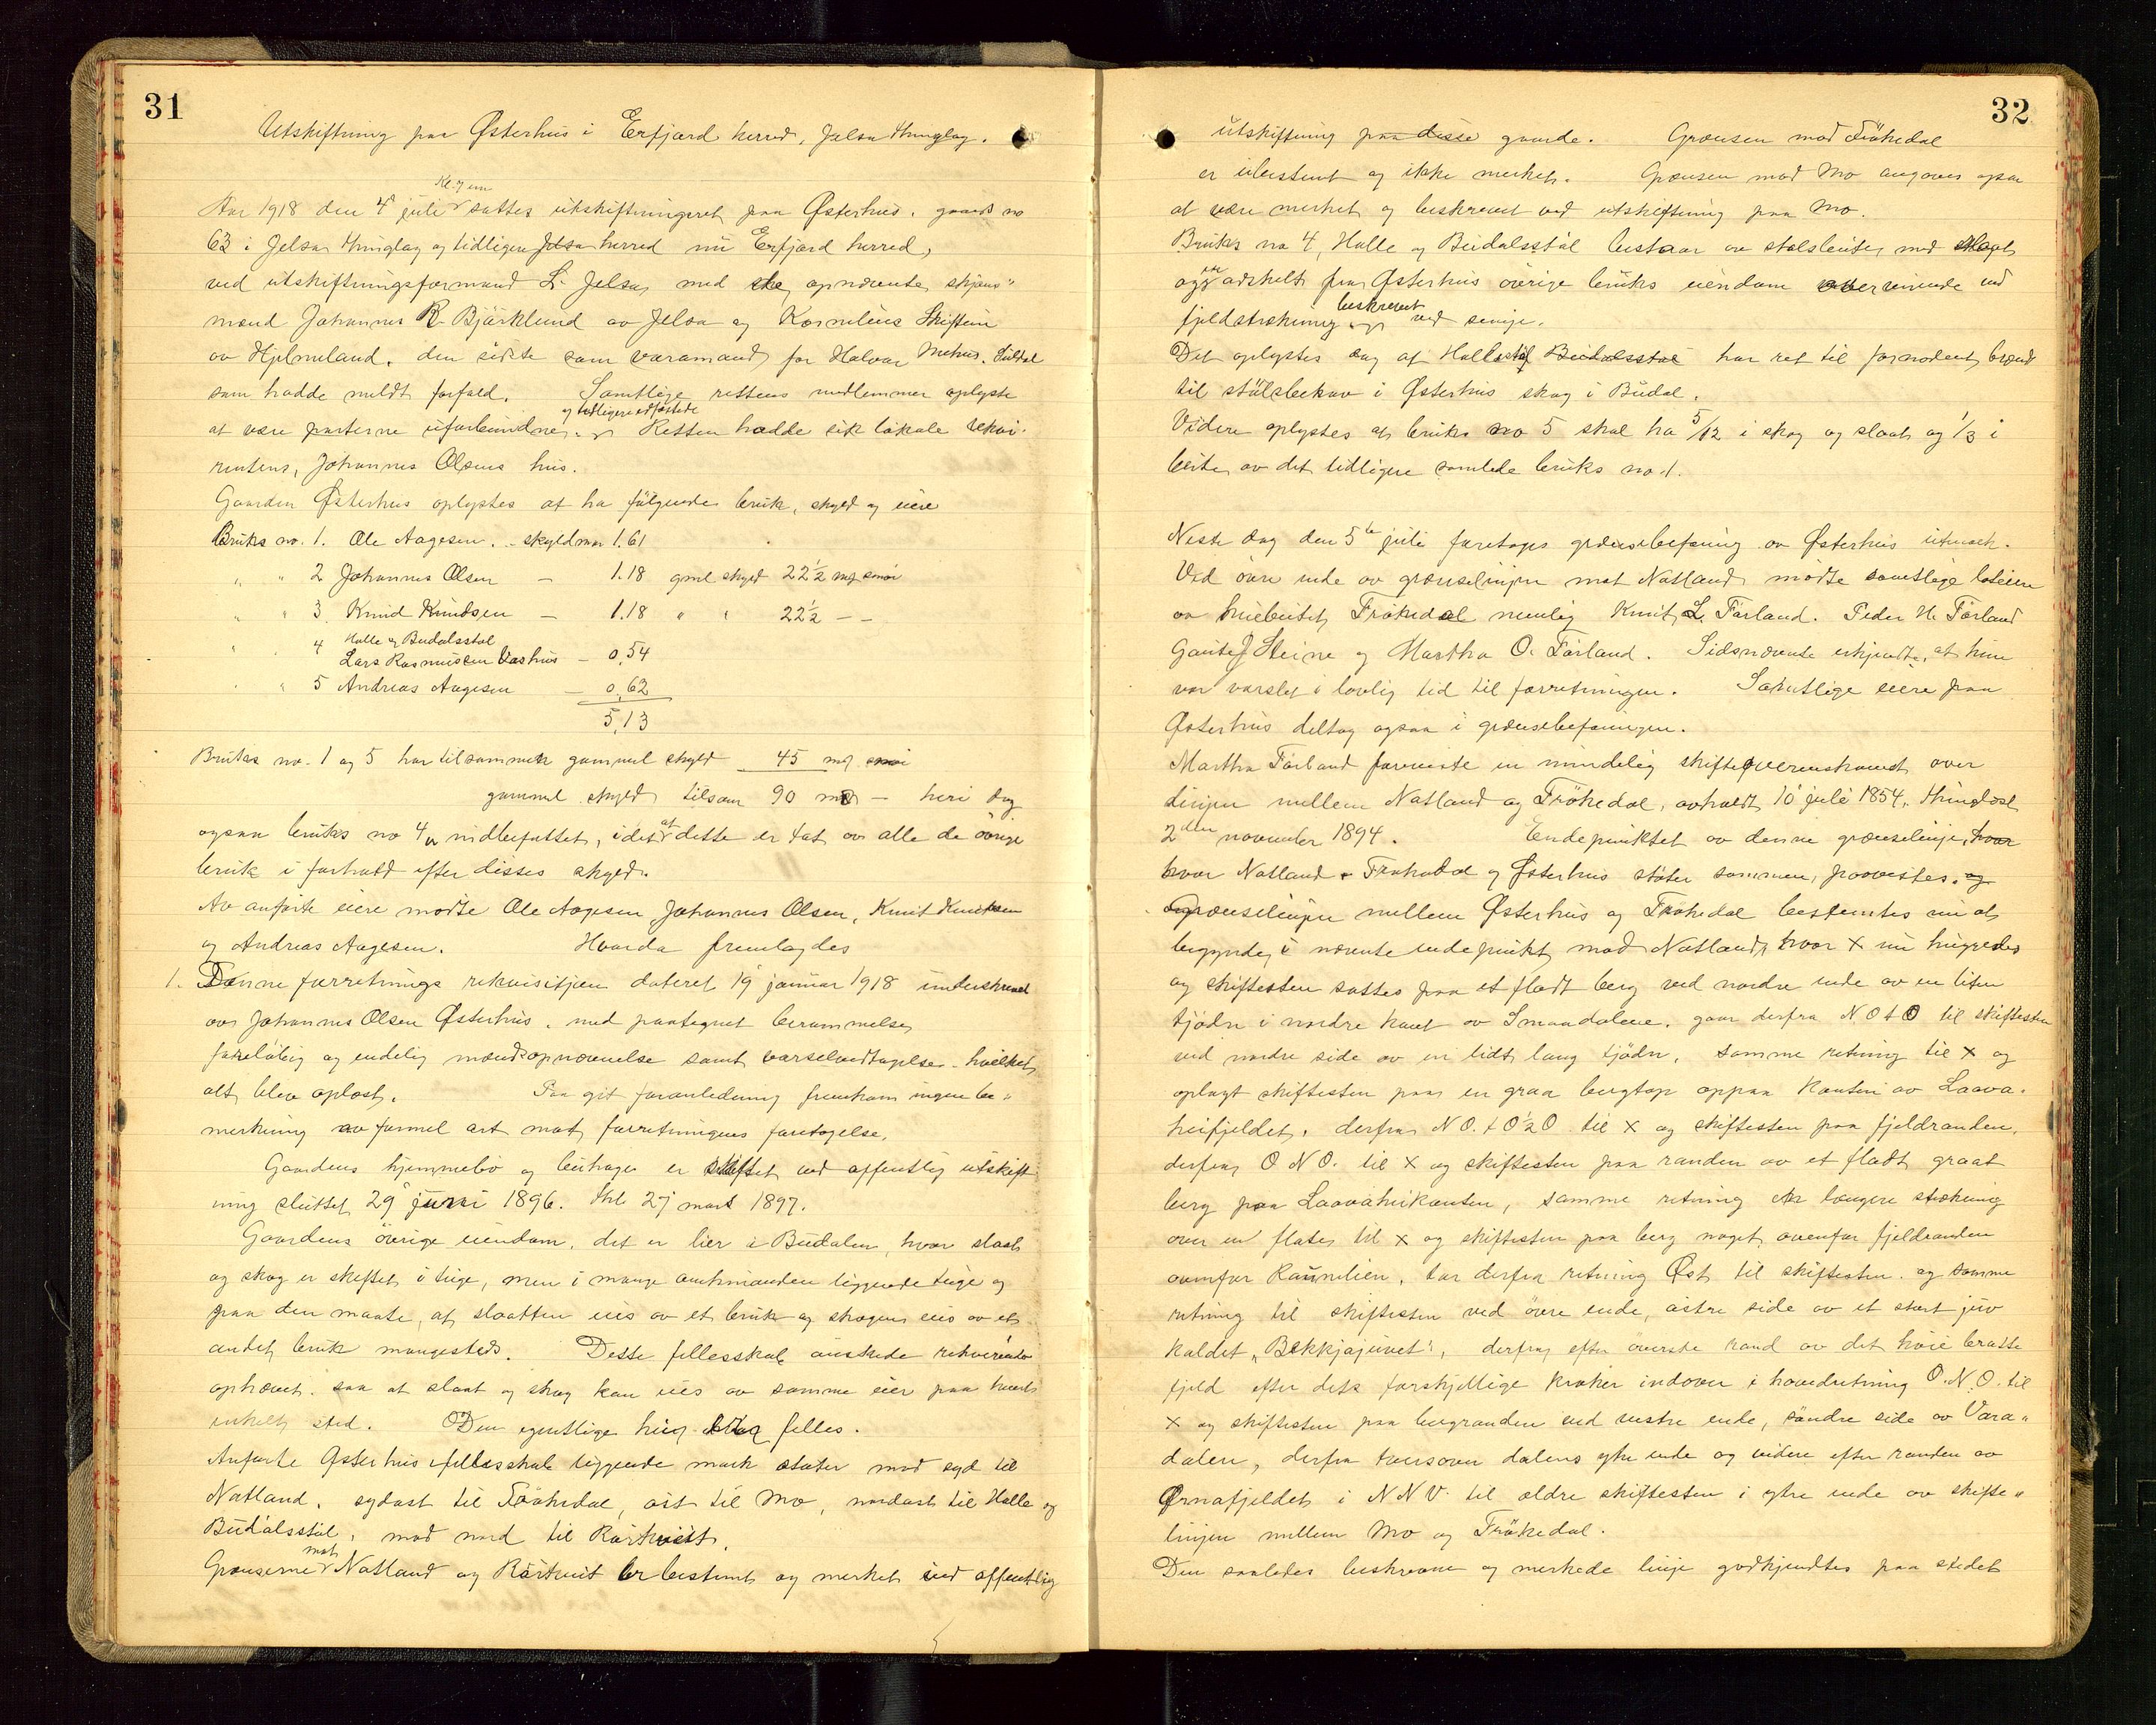 31
Utskiftning paa Østerhus i Erfjord herred, Jelsa thinglag.
Kl. 7 em
Aar 1918 den 4de juli sattes utskiftningsret paa Østerhus, gaards no
63 i Jelsa thinglag og tidligere Jelsa herred nu Erfjord herred,
ved utskiftningsformand L. Jelsa, med de opnævnte skjøns-
mænd Johannes R Bjørklund av Jelsa og Kornelius Skiftun
av Hjelmeland, den sidste som varamand for Halvor Mehus, Suldal
som hadde meldt forfald. Samtlige rettens medlemmer oplyste
og tidligere edfæstede
at være parterne uforbundne. Retten hadde sit lokale rekvi-
rentens, Johannes Olsens hus.
Gaarden Østerhus oplystes at ha følgende bruk, skyld og eiere
Bruks no. 1. Ole Aagesen. - skyldmark 1.61
" " 2 Johannes Olsen — 1.18 gml skyld 22½ mrk smør
" " 3. Knud Knudsen — 1.18 " " 22½ — —
Halle og Budalsstøl
" " 4 Lars Rasmussen Vashus — 0,54
" " 5 Andreas Aagesen — 0,62
5,13
Bruks no. 1 og 5 har tilsammen gammel skyld 45 mrk smør
gammel skyld tilsam 90 mrk — heri dog
ogsaa bruks no 4 indbefattet, idet at dette er tat av alle de øvrige
bruk i forhold efter disses skyld.
Av anførte eiere møtte Ole Aagesen, Johannes Olsen, Knut Knutsen
og Andreas Aagesen. Hvorda fremlagdes
1. Denne forretnings rekvisitjon dateret 19 januar 1918 underskrevet
av Johannes Olsen Østerhus, med paategnet berammelse,
foreløbig og endelig mændsopnævnelse samt varselvedtagelse - hvilket
alt blev oplæst. Paa git foranledning fremkom ingen be-
merkning av formel art mot forretningens foretagelse.
Gaardens hjemmebø og beitehager er skiftet ved offentlig utskift-
ning sluttet 29 juni 1896. thl 27 mars 1897.
Gaardens øvrige eiendom, det er lier i Budalen, hvor slaat
og skog er skiftet i teige, men i mange omhinanden liggende teige og
paa den maate, at slaatten eies av et bruk og skogen eies av et
andet bruk mangesteds. Dette fellesskab ønskede rekvirenten
ophævet, saa at slaat og skog kan eies av samme eier paa hvert
enkelt sted. Den egentlige hei felles.
Anførte Østerhus i fellesskab liggende mark støter mod syd til
Natland, sydøst til Frøkedal, øst til Mo, nordøst til Halle og
Budalsstøl, mod nord til Rørtveit.
mot
Grænserne Natland og Rørtveit er bestemt og merket ved offentlig
32
utskiftning paa disse gaarde. Grænsen mod Frøkedal
er ubestemt og ikke merket. Grænsen mod Mo angaves ogsaa
at være merket og beskrevet ved utskiftning paa Mo.
Bruks no 4, Halle og Budalsstøl bestaar av stølsbeite, med slaat
og adskilt fra Østerhus øvrige bruks eiendom overveiende ved
beskrevet
fjeldstrekning og ved senige.
Det oplystes dog at Hallestøl Budalsstøl har ret til fornødent brænde
til stølsbehov i Østerhus skog i Budal.
Videre oplystes at bruks no 5 skal ha 5/12 i skog og slaat og 1/3 i
beite av det tidligere samlede bruks no 1.
Neste dag den 5te juli foretoges grænsebefaring av Østerhus utmark.
Ved øvre ende av grænselinjen mot Natland møtte samtlige loteiere
av heiebeitet Frøkedal nemlig Knut L. Førland, Peder H. Førland
Gaute J Steine og Martha O. Førland. Sidsnævnte erkjendte, at hun
var varslet i lovlig tid til forretningen. Samtlige eiere paa
Østerhus deltog ogsaa i grænsebefaringen.
Martha Førland foreviste en mindelig skifteoverenskomst over
linjen mellem Natland og Frøkedal, avholdt 10 juli 1854, thinglæst
2den november 1894. Endepunktet av denne grænselinje, hvor
hvor Natland - Frøkedal og Østerhus støter sammen, paavistes. og
Grænselinjen mellem Østerhus og Frøkedal bestemtes nu at
begynde i nævnte endepunkt mod Natland, hvor x nu huggedes
og skiftesten sattes paa et fladt berg ved nordre ende av en liten
tjødn i nordre kant av Smaadalene, gaar derfra N.O t O til skiftesten
ved nordre side av en lidt lang tjødn, samme retning til x og
oplagt skiftesten paa en graa bergtop oppaa kanten av Laava-
heifjeldet, derfra N O. t O ½ O til x og skiftesten paa fjeldranden,
derfra O N O. til x og skiftesten paa randen av et fladt graat
berg paa Laavaheikanten, samme retning en længere strekning
over en flate til x og skiftesten paa berg noget ovenfor fjeldranden
ovenfor Raunelien, tar derfra retning Øst til skiftesten og samme
retning til skiftesten ved øvre ende, østre side av et stort juv
kaldet „Bekkjajuvet", derfra efter øverste rand av det høie bratte
fjeld efter dets forskjellige kroker indover i hovedretning O.N.O. til
x og skiftesten paa bergranden ved vestre ende, søndre side av Vara-
dalen, derfra tversover dalens ytre ende og videre efter randen av
Ørnafjeldet i N N V. til ældre skiftesten i ytre ende av skifte-
linjen mellem Mo og Frøkedal.
Den saaledes beskrevne og merkede linje godkjendtes paa stedet